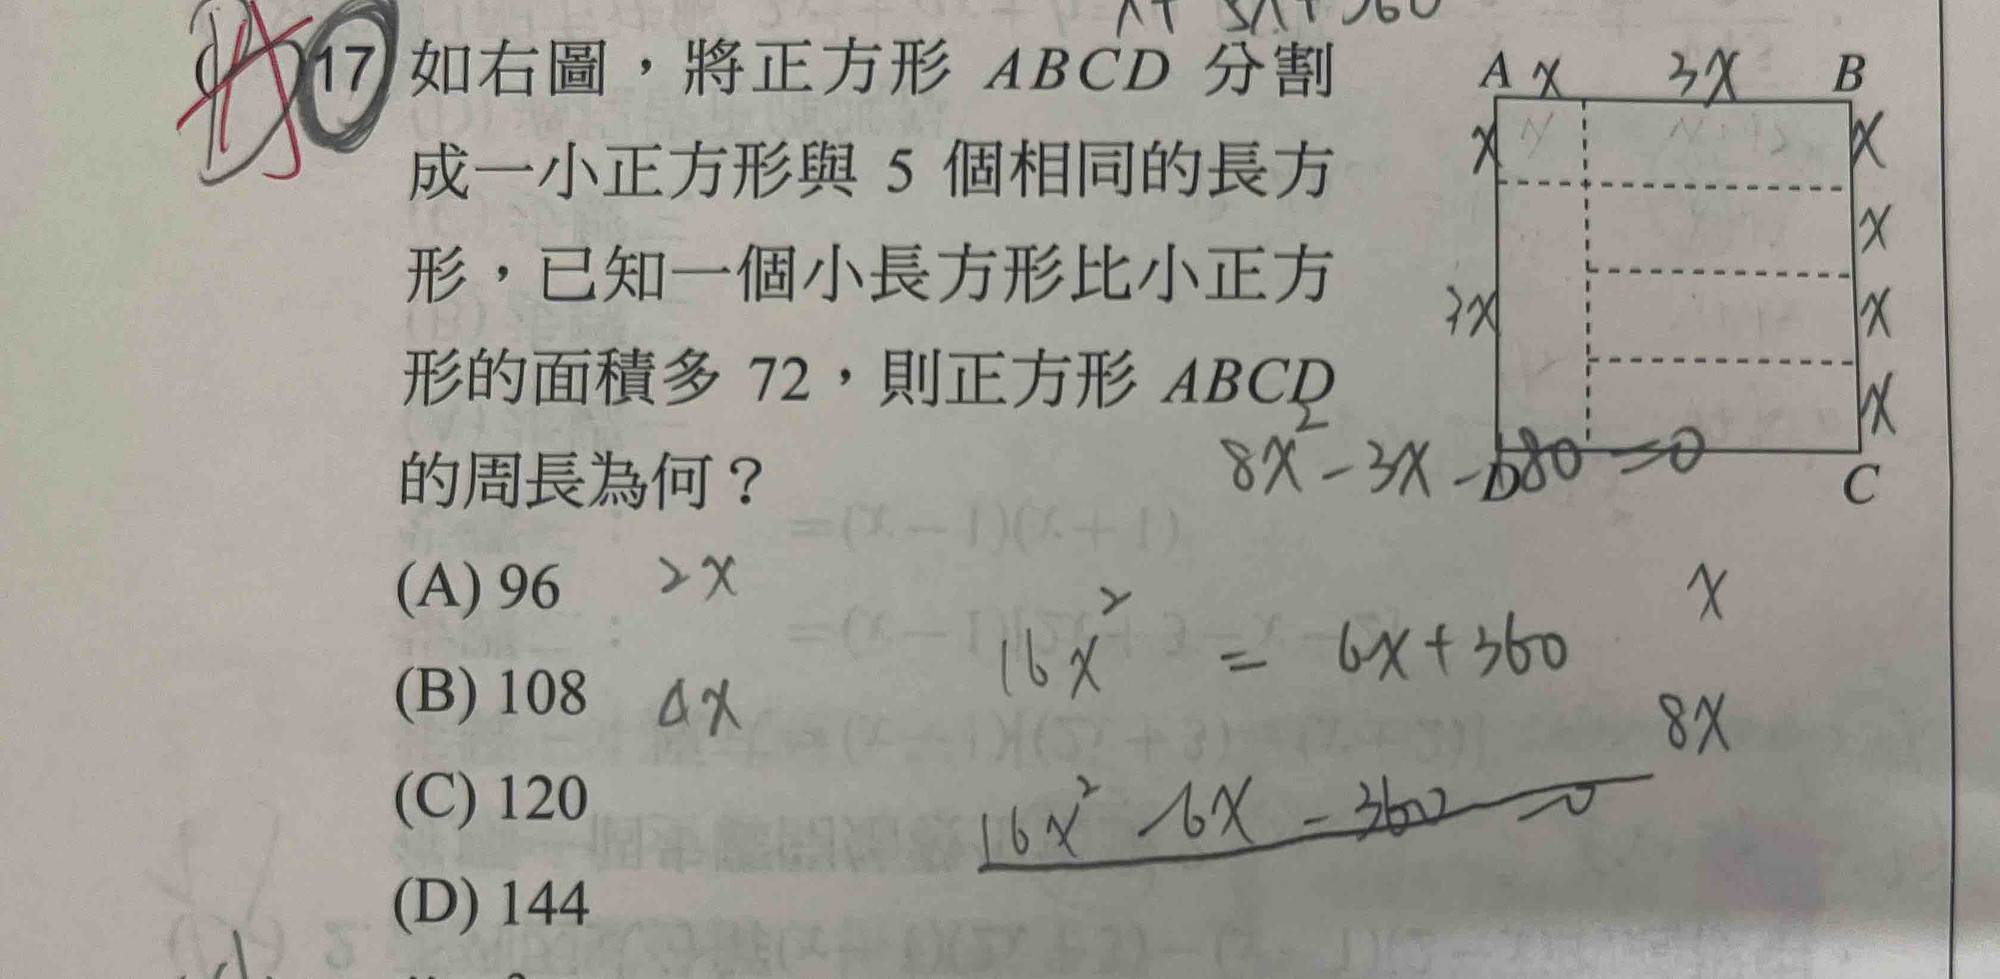 17 如右圖，將正方形 ABCD 分割
成一小正方形與 5 個相同的長方
形，已知一個小長方形比小正方
形的面積多 72，則正方形 ABCD
的周長為何？
(A) 96
(B) 108
(C) 120
(D) 144
A x 3x B
x x
x
3x x
x
D C
8x² - 3x - 180 = 0
2x
4x
16x² = 6x + 360
x
8x
16x² - 6x - 360 = 0